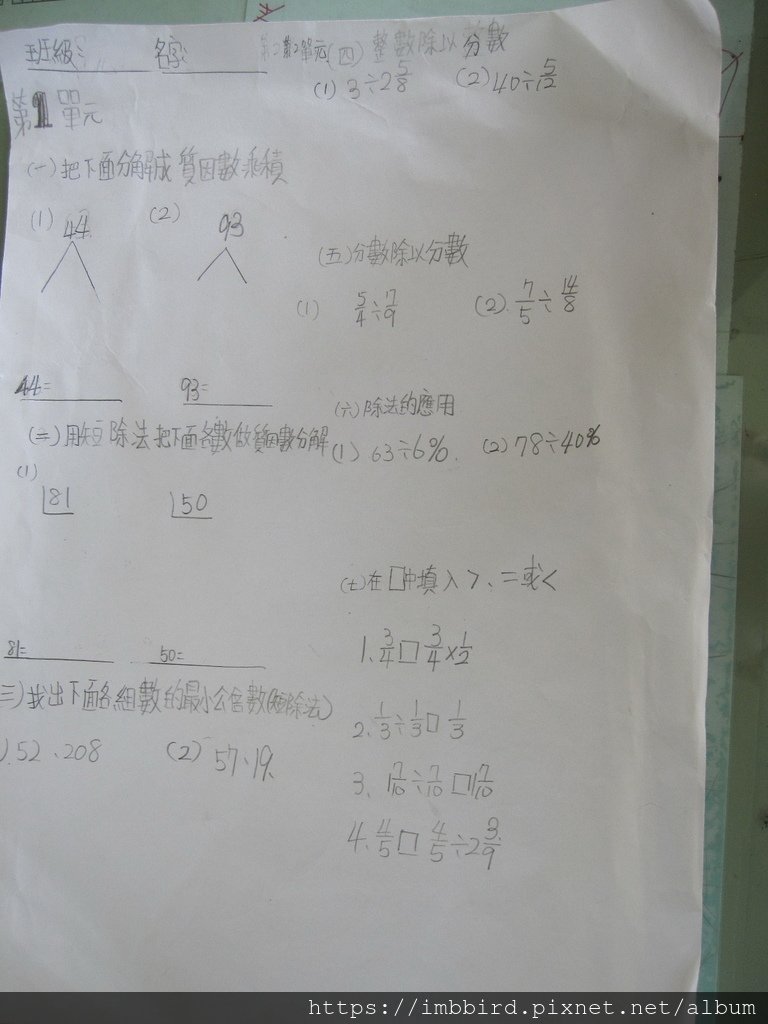 班級: 名字:
第1單元
(一)把下面分解成質因數乘積
(1) 44 (2) 93
44= 93=
(二)用短除法把下面各數做質因數分解
(1) 81 50
81= 50=
三)找出下面各組數的最小公倍數(短除法)
).52、208 (2) 57、19、
第2單元(四)整數除以分數
(1) 3÷2 5/8 (2) 40÷5/12
(五)分數除以分數
(1) 5/4÷7/9 (2). 7/5÷14/8
(六)除法的應用
(1) 63÷6%. (2) 78÷40%
(七)在□中填入>、=或<
1. 3/4□3/4×1/2
2. 1/3÷1/3□1/3
3. 1 7/10÷7/10□1 7/10
4. 4/5□4/5÷2 3/9
https://imbbird.pixnet.net/album